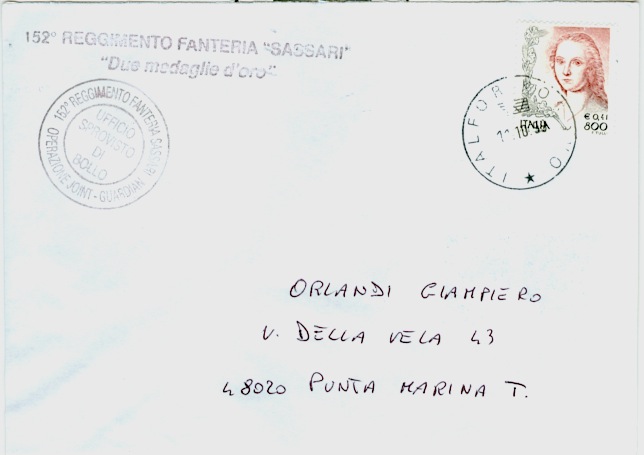 152° REGGIMENTO FANTERIA "SASSARI"
"Due medaglie d'oro"
152° REGGIMENTO FANTERIA SASSARI
OPERAZIONE JOINT-GUARDIAN
UFFICIO
SPROVISTO
DI
BOLLO
ITALFOR
1 .10.99
ITALIA
€ 0,41
800
ORLANDI GIAMPIERO
V. DELLA VELA 43
48020 PUNTA MARINA T.